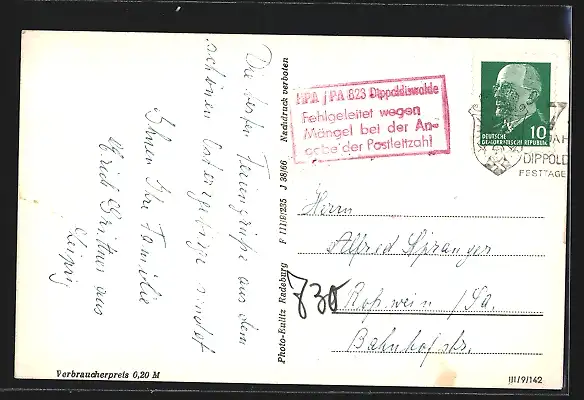 Die besten Feriengrüße aus dem
schönen Osterzgebirge sendet
Ihnen Ihre Familie
Erich aus
Leipzig
Verbraucherpreis 0,20 M
Photo-Kulitz Radeburg F III/9/235 J 38/66 Nachdruck verboten
HPA / PA 823 Dippoldiswalde
Fehlgeleitet wegen
Mängel bei der An-
gabe der Postleitzahl
DEUTSCHE
DEMOKRATISCHE REPUBLIK
10
DIPPOLD
FESTTAGE
Herrn
Alfred Spranger
730
Roßwein /Sa.
Bahnhofstr.
III/9/142